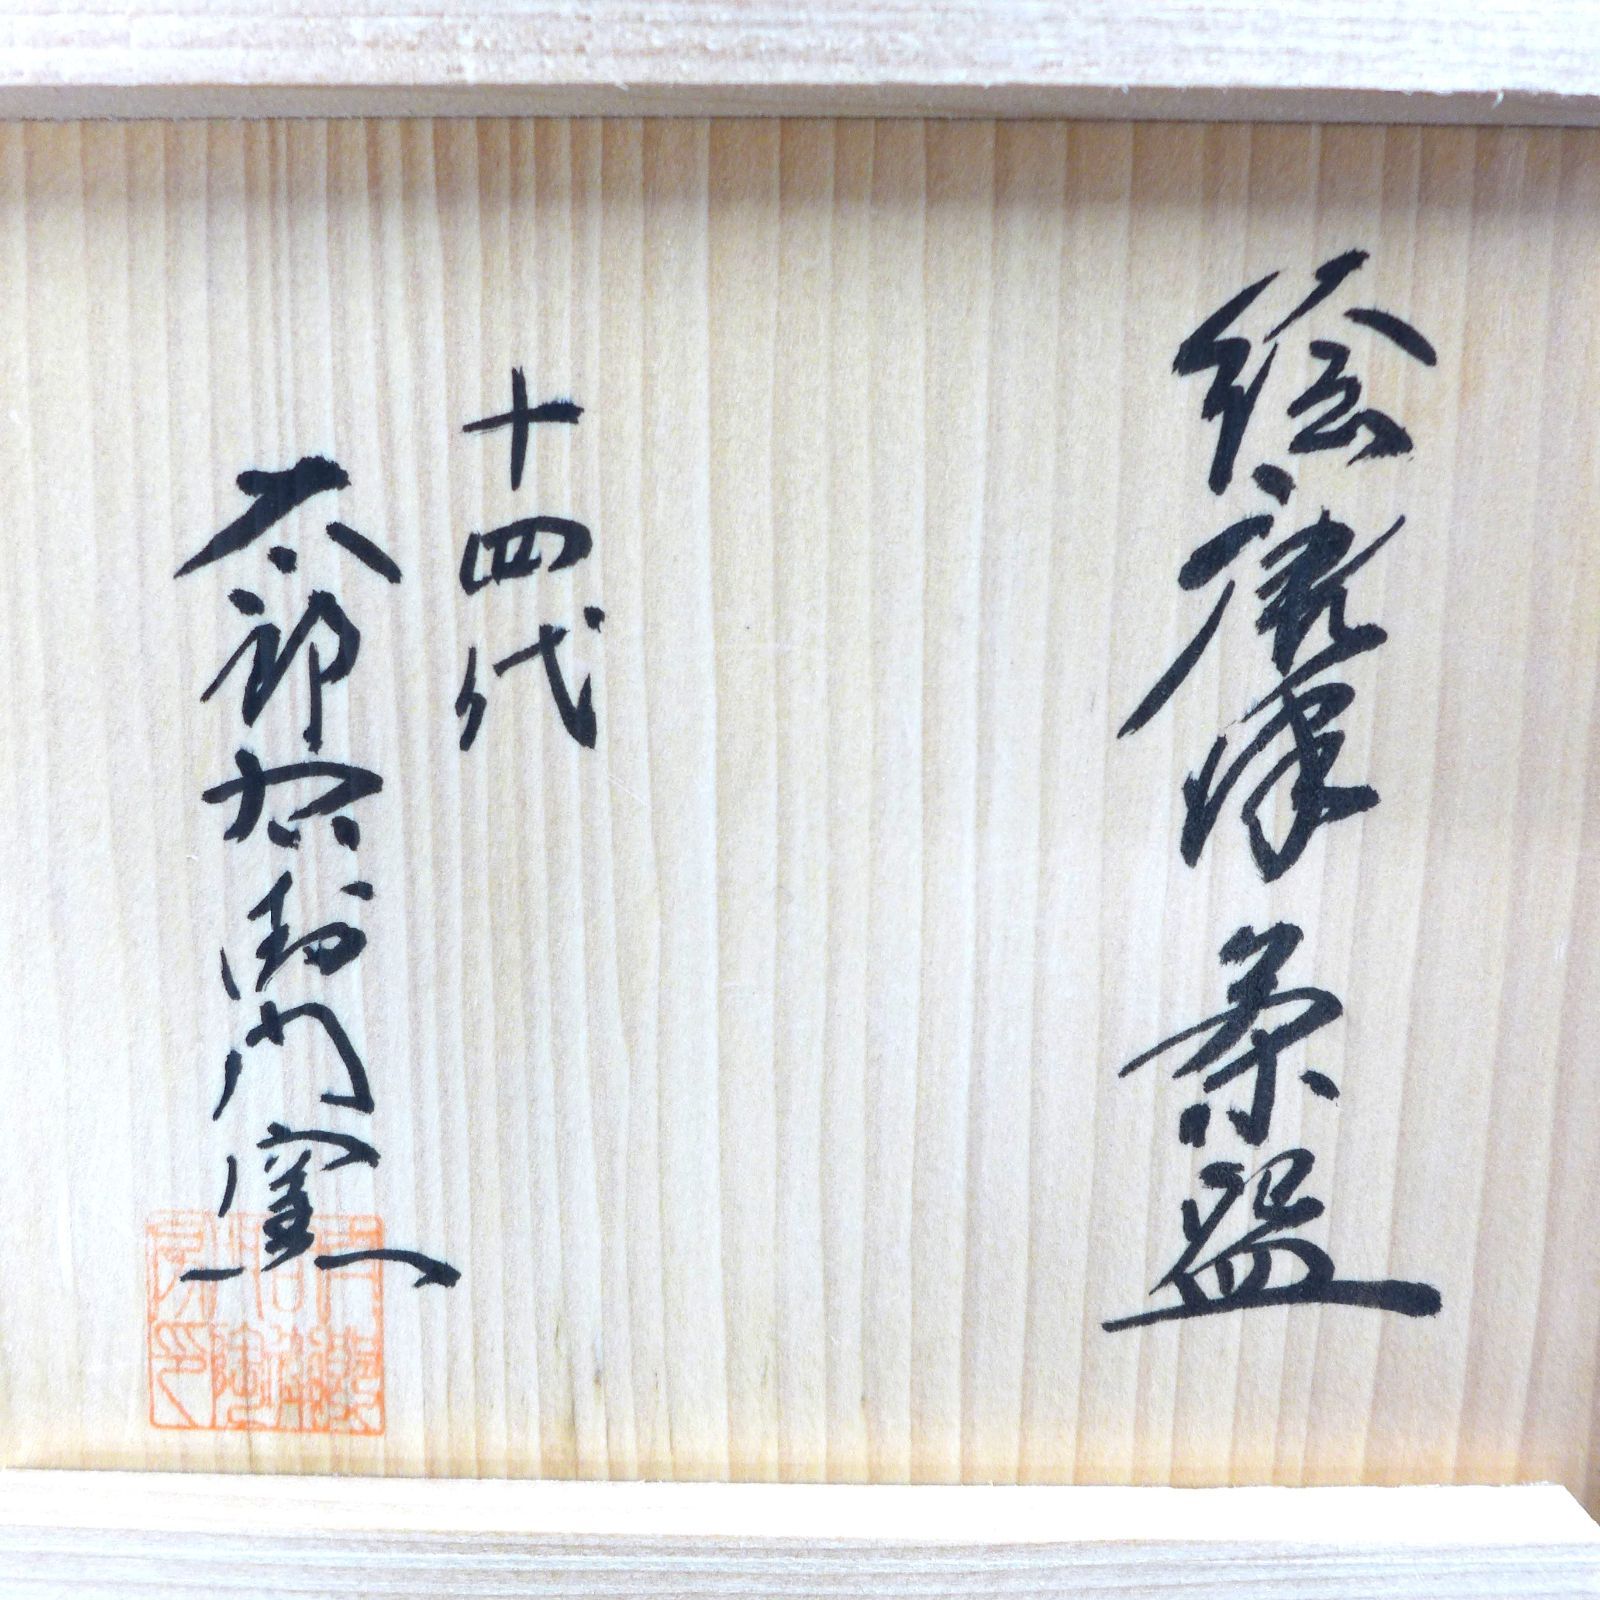 絵唐津茶盌
十四代
太郎右衛門窯